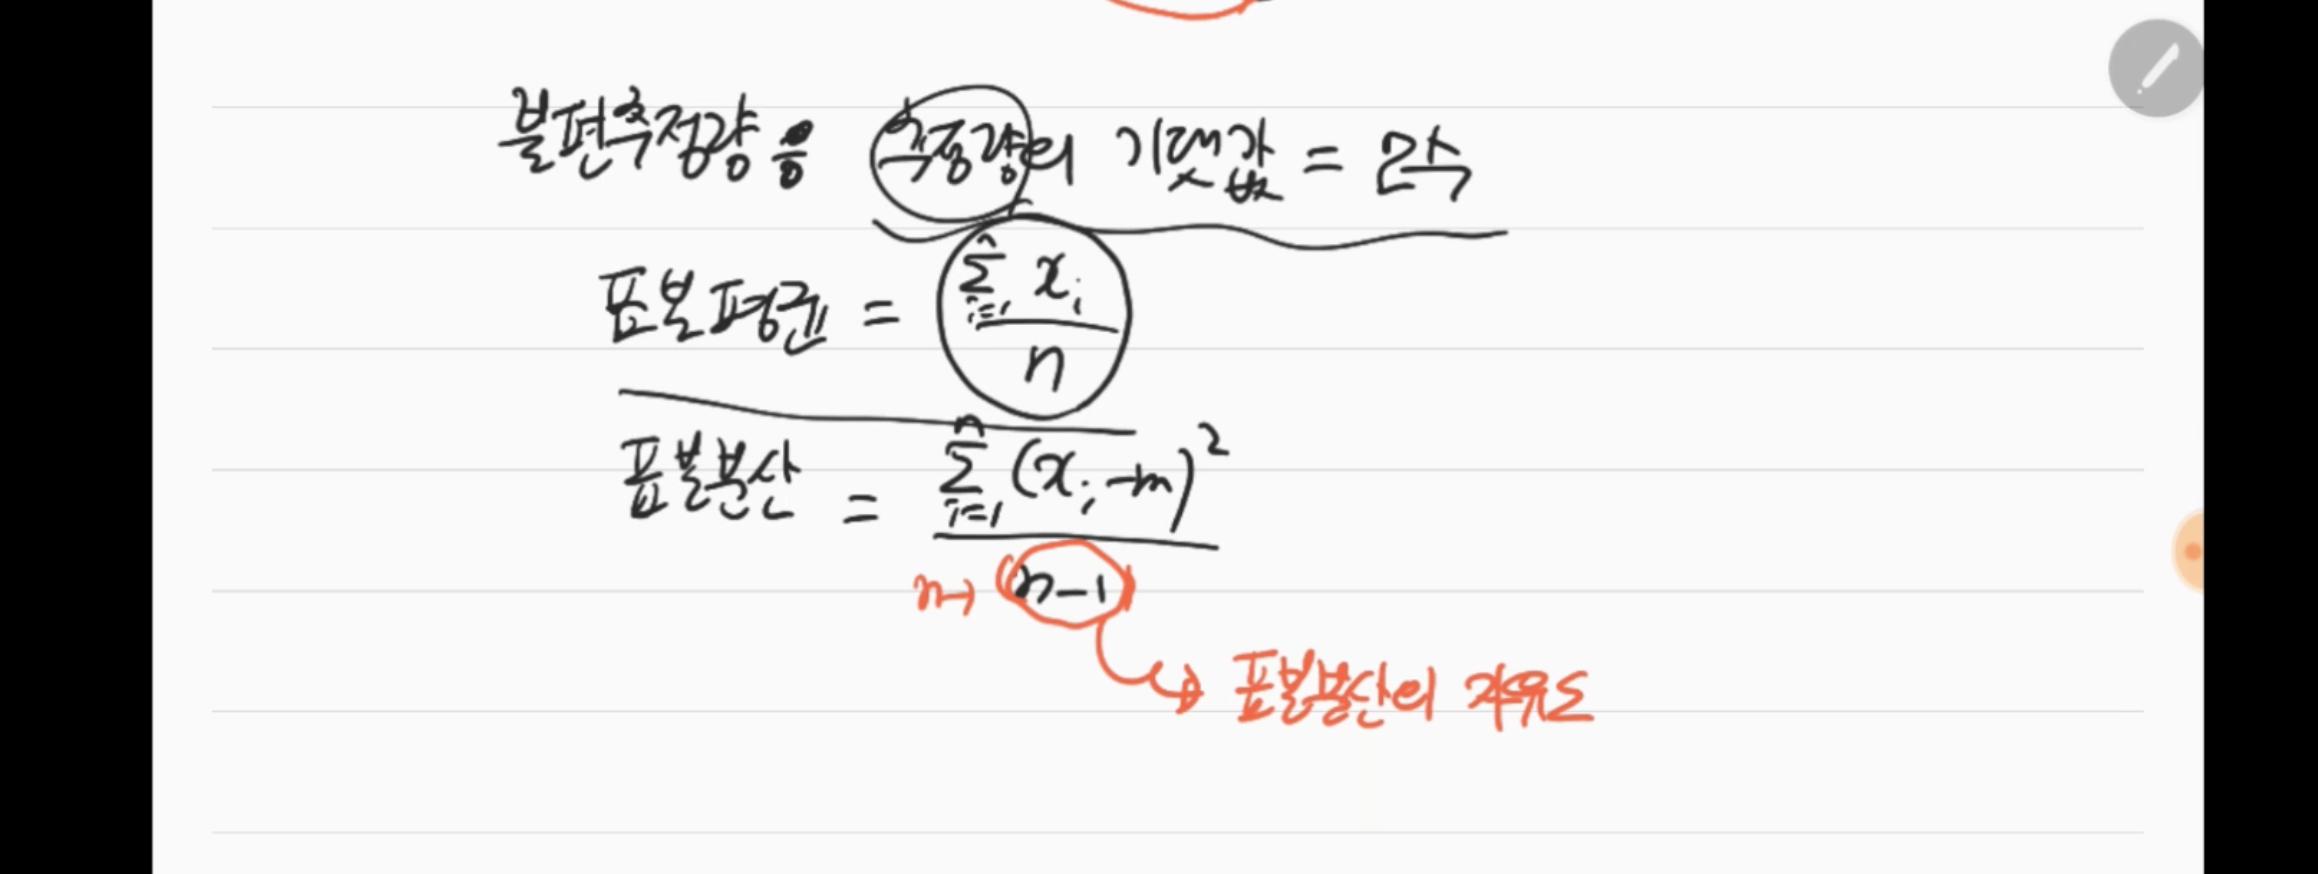 불편추정량은 추정량의 기댓값 = 모수
표본평균 = \frac{\sum_{i=1}^{n} x_i}{n}
표본분산 = \frac{\sum_{i=1}^{n} (x_i - m)^2}{n-1}
n → (n-1)
표본분산의 자유도